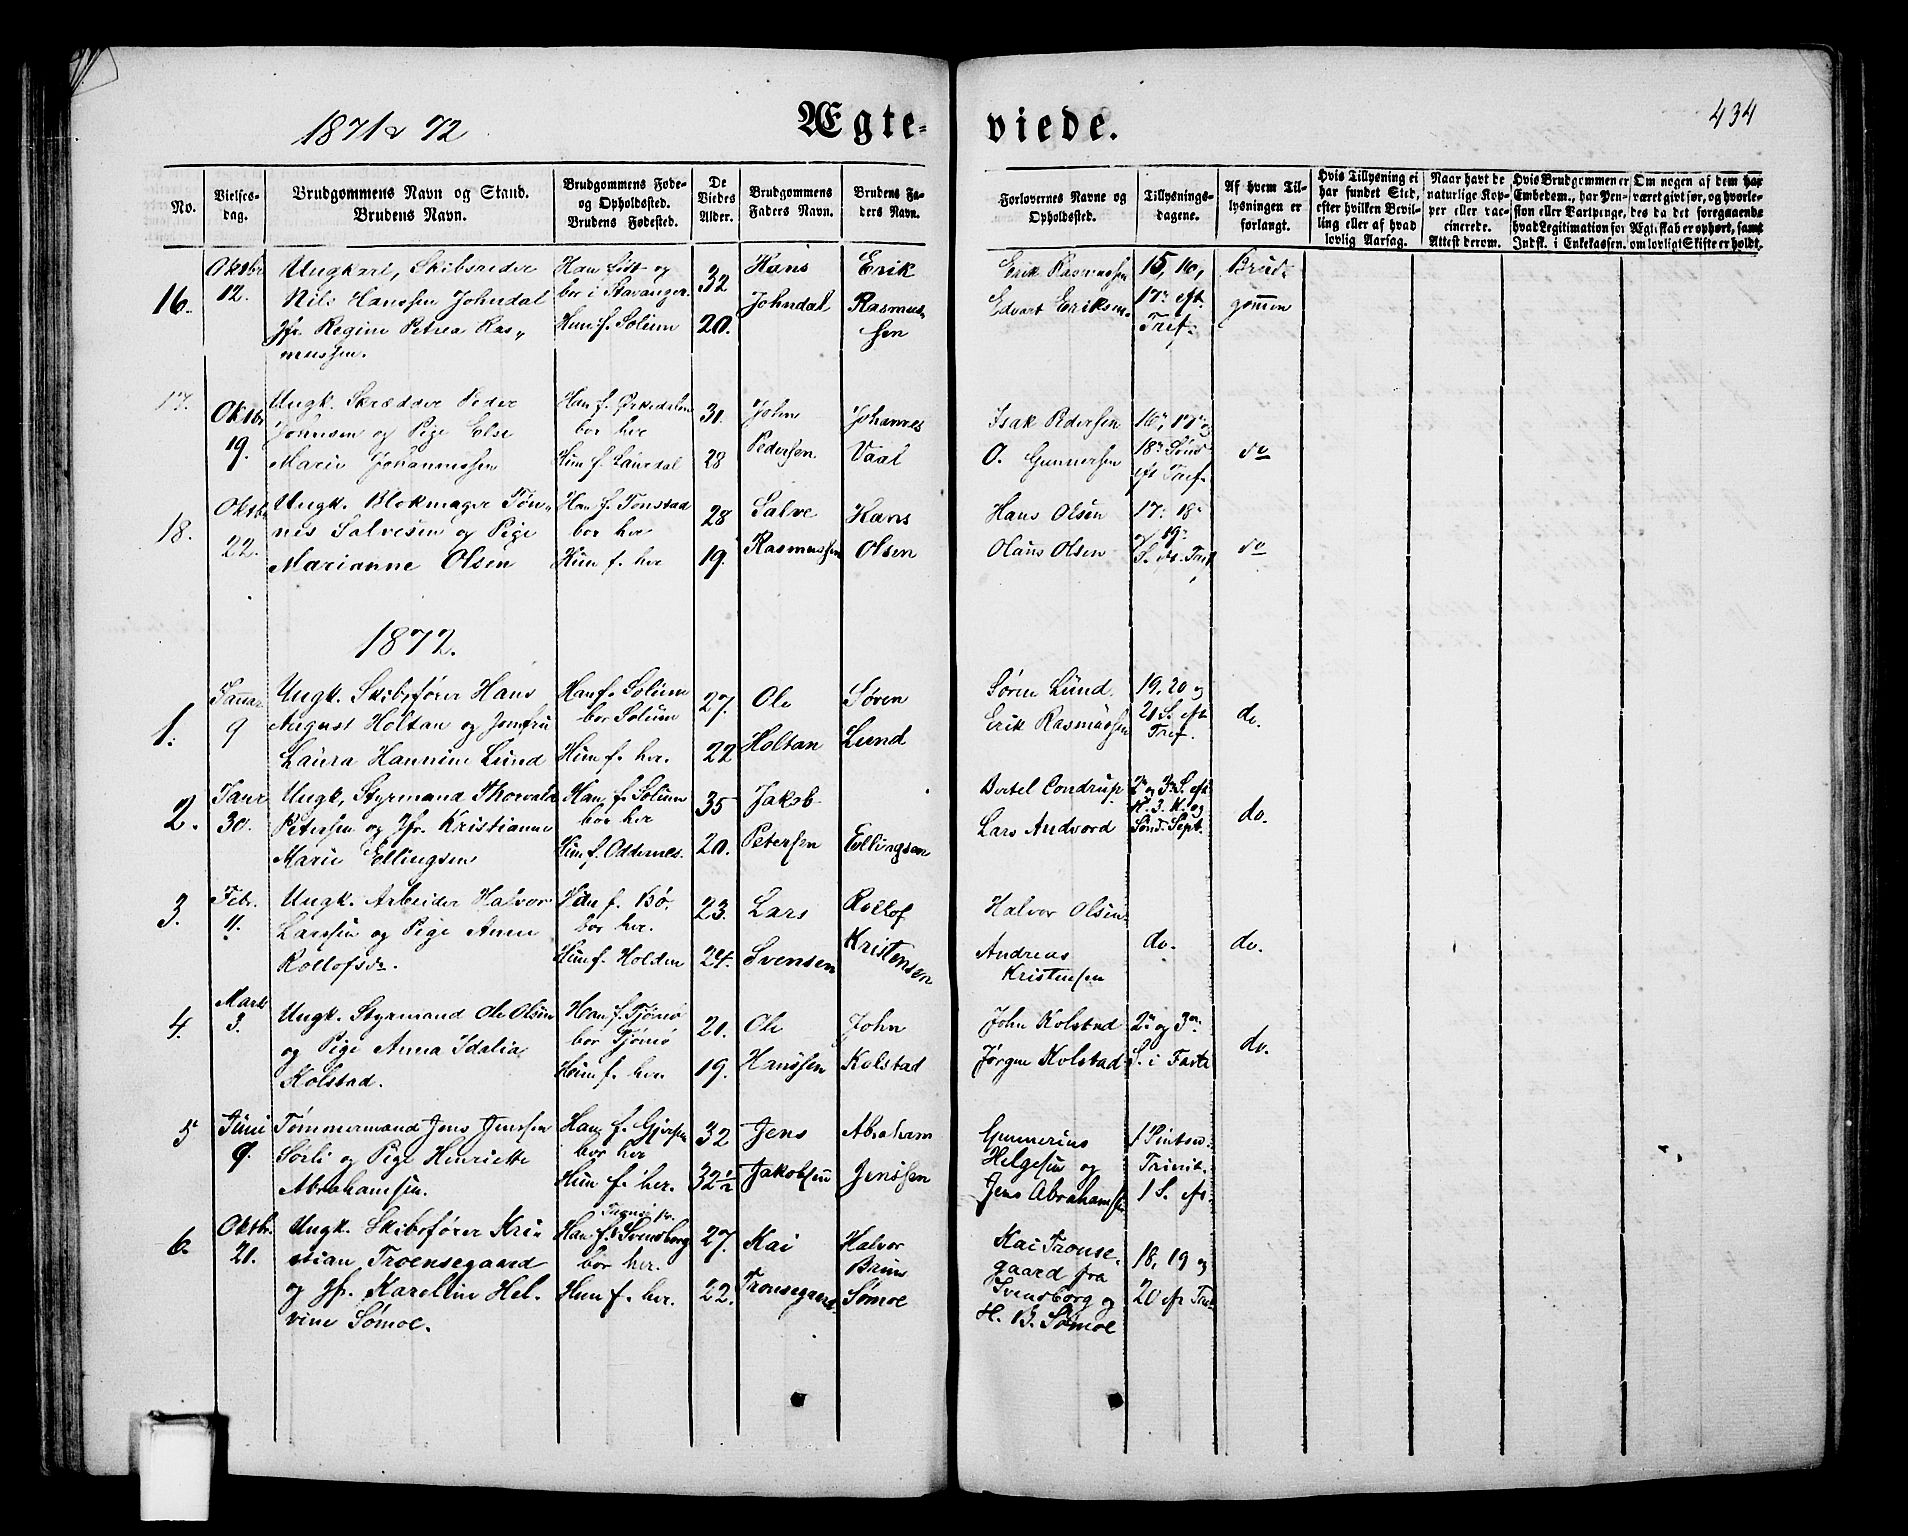 1871 & 72
Ægte-
viede.
434
No.
Vielses-
dag.
Brudgommens Navn og Stand.
Brudens Navn.
Brudgommens Føde-
og Opholdssted.
Brudens Fødested.
De
Viedes
Alder.
Brudgommens
Faders Navn.
Brudens Fa-
ders Navn.
Forlovernes Navne og
Opholdssted.
Tillysnings-
dagene.
Af hvem Til-
lysningen er
forlangt.
Hvis Tillysning ei
har fundet Sted,
efter hvilken Bevil-
ling eller af hvad
lovlig Aarsag.
Naar havt de
naturlige Kop-
per eller vac-
cinerede.
Attest derom.
Hvis Brudgommen er
Embedsm., har Pen-
sion eller Vartpenge,
hvad Legitimation for
Indsk. i Enkekassen.
Om nogen af dem har
været gift før, og hvorle-
des da det foregaaende
Ægteskab er ophørt, samt
om lovligt Skifte er holdt.
16.
Oktbr
12.
Ungkarl, Skibsreder
Nils Hanssen Johndal
Jfr. Regine Petrea Ras-
mussen.
Han født og
bor i Stavanger.
Hun f. Solum
32
20.
Hans
Johndal
Erik
Rasmus-
sen
Erik Rasmussen
Edvart Eriksen
15, 16,
17n eft.
Tref.
Brud-
gommen
17.
Oktbr
19.
Ungk. Skrædder Peder
Johnsen og Pige Else
Marie Johannessen
Han f. Ørkedalen
bor her
Hun f. Laurdal
31.
28
John
Pedersen
Johannes
Vaal
Isak Pedersen
O. Gunnersen
16n, 17n og
18n Sønd
eft Tref.
do
18.
Oktbr
22.
Ungk. Blokmager Tøn-
nes Salvesen og Pige
Marianne Olsen
Han f. Tonstad
bor her
Hun f. her
28
19.
Salve
Rasmussen
Hans
Olsen
Hans Olsen
Olaus Olsen
17n 18n
og 19n
S. ef. Tref
do
1872.
1.
Januar
9
Ungk. Skibsfører Hans
August Holtan og Jomfru
Laura Hannine Lund
Han f. Solum
bor Solum
Hun f. her.
27.
22
Ole
Holtan
Søren
Lund
Søren Lund.
Erik Rasmussen
19, 20 og
21 S. eft
Tref.
do.
2.
Janr
30.
Ungk, Styrmand Thorvald
Petersen og Jfr. Kristianne
Marie Ellingsen
Han f. Solum
bor her
Hun f. Oddernes.
35
20.
Jakob
Petersen
Ellingsen
Bertel Condrup
Lars Andvord
2n og 3n S. eft
H. 3. K. og
Sønd. Sept.
do.
3.
Febr.
11.
Ungk. Arbeider Halvor
Larssen og Pige Anne
Rollofsdr.
Han f. Bø.
bor her.
Hun f. Holden
23.
24.
Lars
Svensen
Rollof
Kristensen
Halvor Olsen
Andreas
Kristensen
do.
do.
4.
Marts
3.
Ungk. Styrmand Ole Olsen
og Pige Anna Idalia
Kolstad.
Han f. Tjømø
bor Tjømø
Hun f. her
21.
19.
Ole
Hanssen
John
Kolstad
John Kolstad
Jørgen Kolstad
2n og 3n
S. i Faste
do.
5
Juni
9.
Tømmermand Jens Jenssen
Sørli og Pige Henriette
Abrahamsen.
Han f. Gjerpen
bor her
Hun f. her.
32
32 1/2
Jens
Jakobsen
Abraham
Jenssen
Gunnerius
Helgesen og
Jens Abrahamsen
1 Pintsed.
Trinit.
1 S. ef.
6.
Oktbr.
21.
Ungk. Skibsfører Kri-
stian Troensegaard
og Jfr. Karelline Hel-
vine Sømoe.
Han f. Svendborg
bor her.
Hun f. her.
27.
22.
Kai
Tronsegaard
Halvor
Brun
Sømoe
Kai Tronse-
gaard fra
Svendborg og
H. B. Sømoe
18, 19 og
20 ef Tref